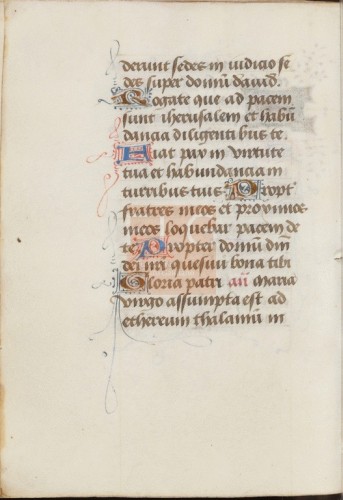 derunt sedes in iudicio se
des super domū dauid.
Rogate que ad pacem
sunt iherusalem et habū
dancia diligentibus te.
Fiat pax in virtute
tua et habundancia in
turribus tuis Propt̄
fratres meos et proximos
meos loquebar pacem de
te Propter domū dn̄i
dei nr̄i quesiui bona tibi
Gloria patri an̄ Maria
virgo assumpta est ad
ethereum thalamū in